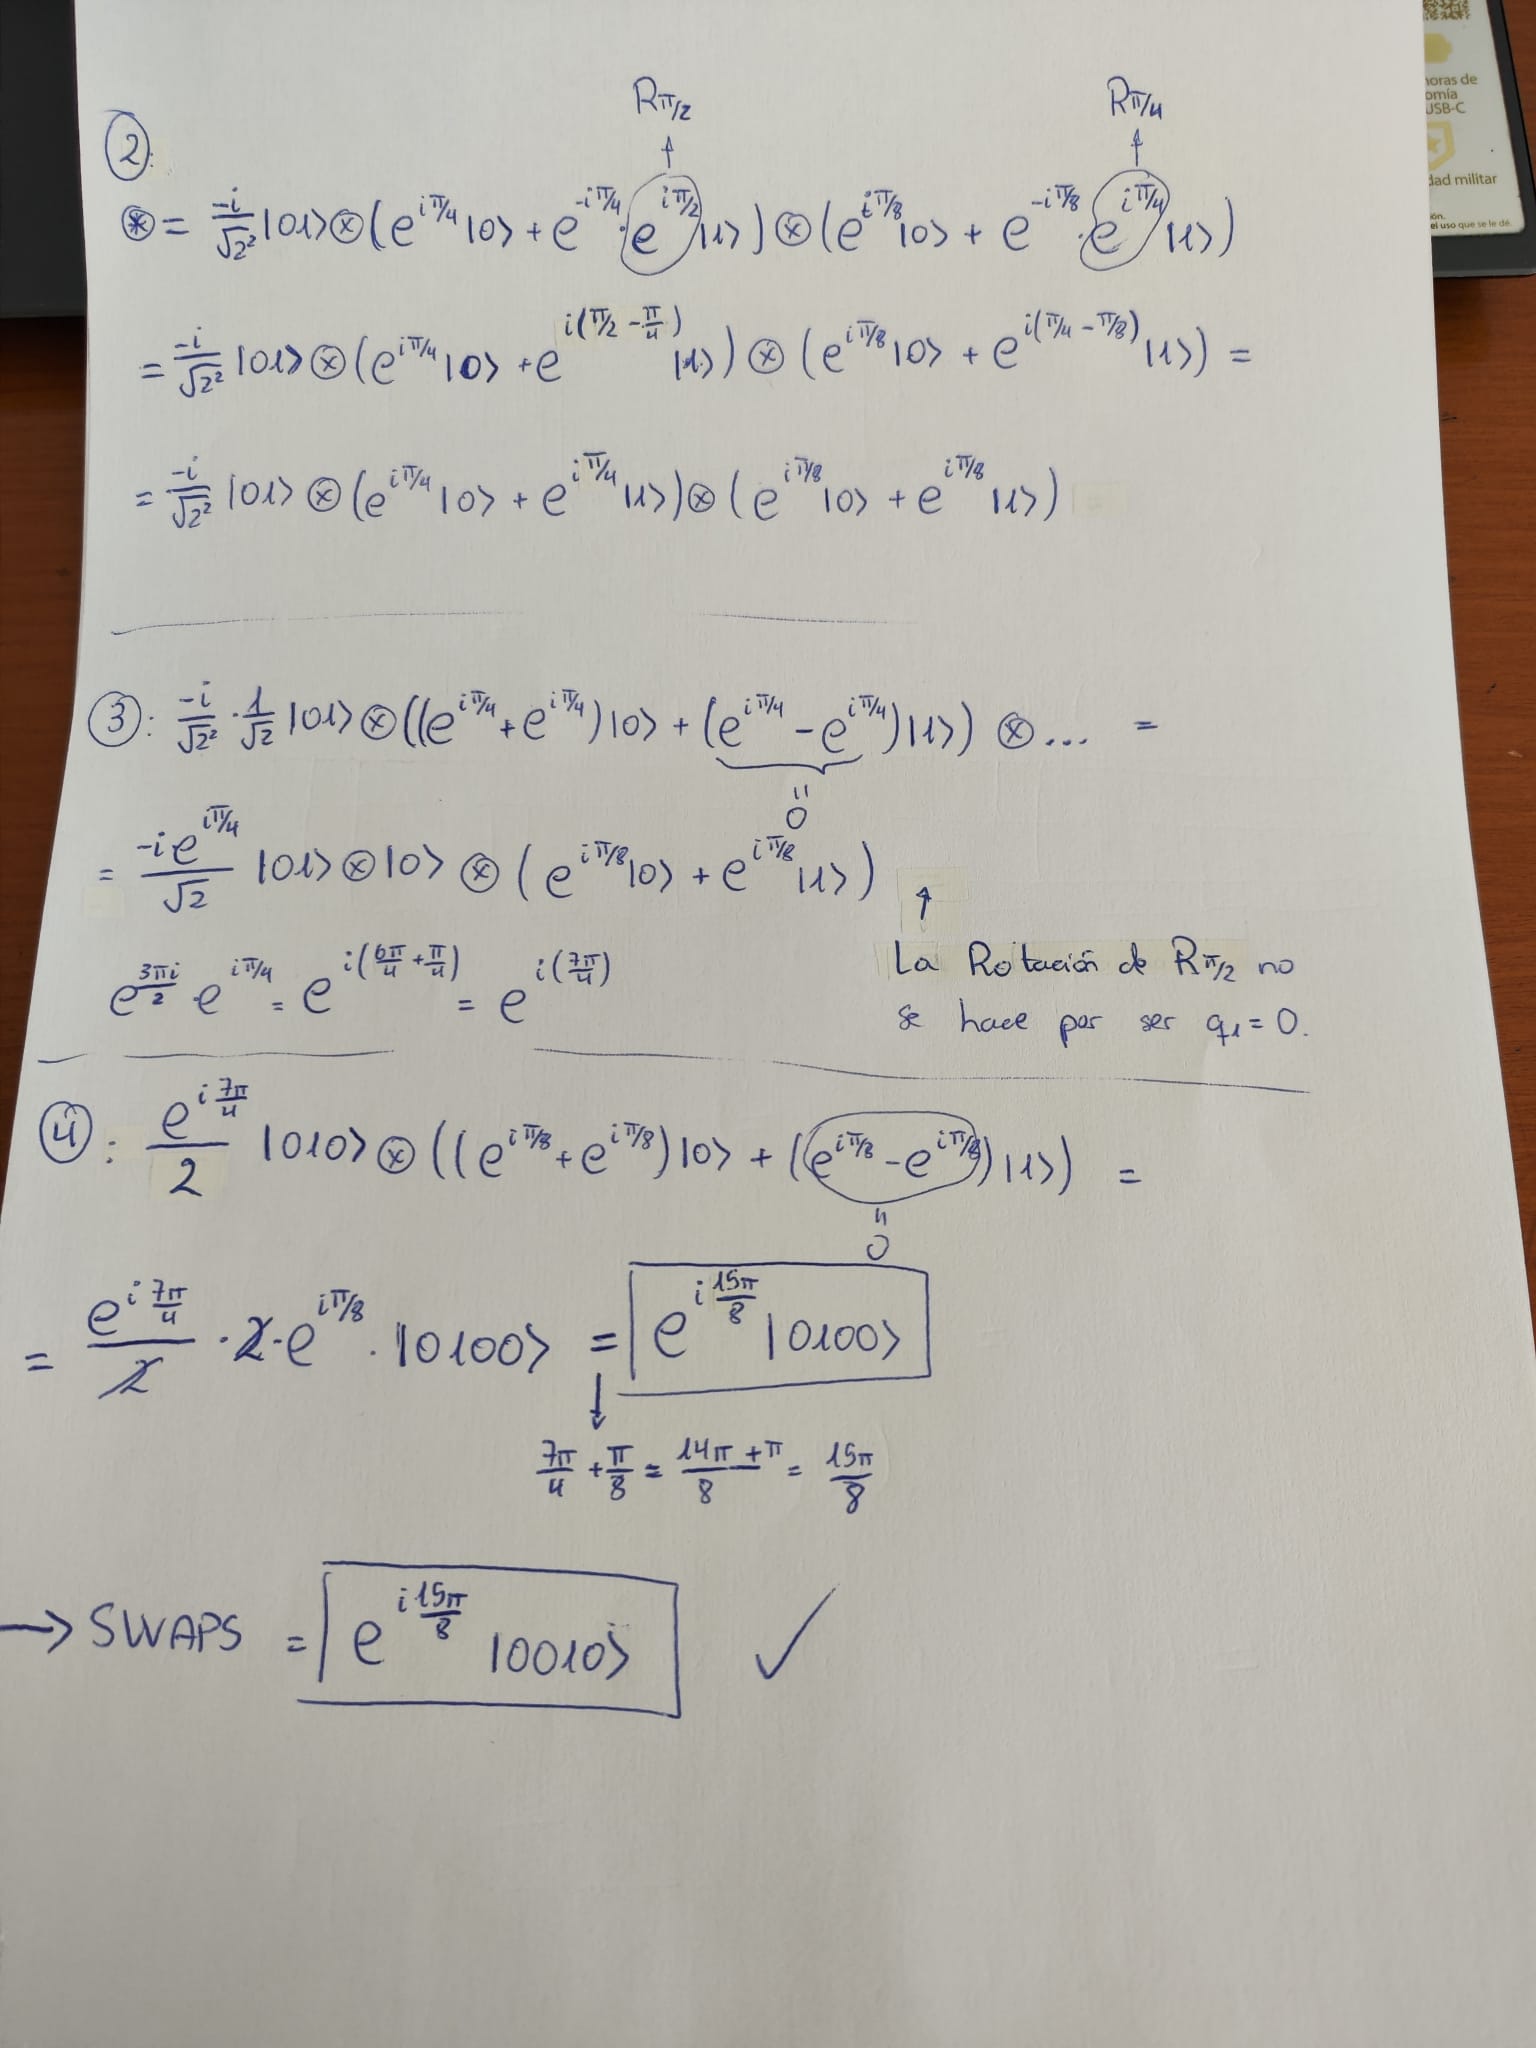 horas de
omía
USB-C
dad militar
ión.
el uso que se le dé.
Rπ/2 Rπ/4
②:
⊛ = -i/√2² |01> ⊗ (e^{iπ/4} |0> + e^{-iπ/4} · e^{iπ/2} |1>) ⊗ (e^{iπ/8} |0> + e^{-iπ/8} · e^{iπ/4} |1>)
= -i/√2² |01> ⊗ (e^{iπ/4} |0> + e^{i(π/2 - π/4)} |1>) ⊗ (e^{iπ/8} |0> + e^{i(π/4 - π/8)} |1>) =
= -i/√2² |01> ⊗ (e^{iπ/4} |0> + e^{iπ/4} |1>) ⊗ (e^{iπ/8} |0> + e^{iπ/8} |1>)
③: -i/√2² · 1/√2 |01> ⊗ ((e^{iπ/4} + e^{iπ/4}) |0> + (e^{iπ/4} - e^{iπ/4}) |1>) ⊗ ... =
=
0
= -i e^{iπ/4}/√2 |01> ⊗ |0> ⊗ (e^{iπ/8} |0> + e^{iπ/8} |1>)
↑
La Rotación de Rπ/2 no
se hace por ser q₁ = 0.
e^{3πi/2} · e^{iπ/4} = e^{i(6π/4 + π/4)} = e^{i(7π/4)}
④: e^{i7π/4}/2 |010> ⊗ ((e^{iπ/8} + e^{iπ/8}) |0> + (e^{iπ/8} - e^{iπ/8}) |1>) =
=
0
= e^{i7π/4}/2 · 2 · e^{iπ/8} · |0100> = e^{i15π/8} |0100>
↓
7π/4 + π/8 = 14π + π/8 = 15π/8
→ SWAPS = e^{i15π/8} |0010> ✓